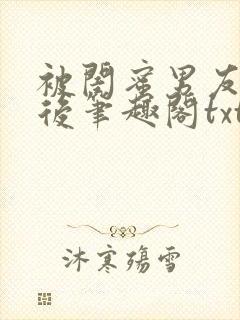 被闺蜜男友
后笔趣阁txt
沐寒殇雪